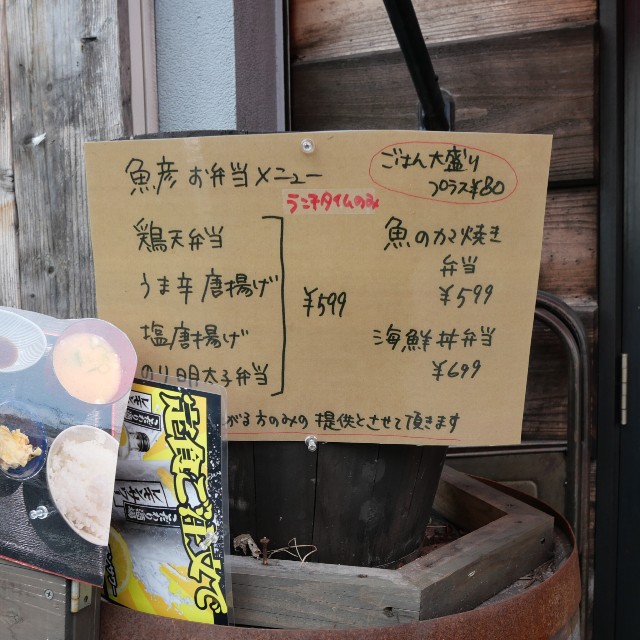 魚彦 お弁当メニュー
ランチタイムのみ
ごはん大盛り
プラス¥80
鶏天弁当
うま辛唐揚げ
塩唐揚げ
のり明太子弁当
¥599
魚のカマ焼き
弁当
¥599
海鮮丼弁当
¥699
がる方のみの提供とさせて頂きます